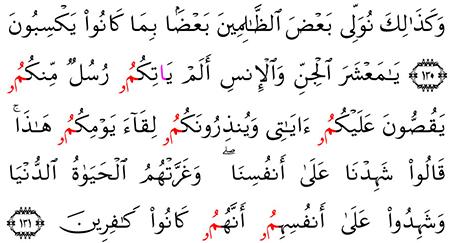 وَكَذَٰلِكَ نُوَلِّى بَعْضَ ٱلظَّٰلِمِينَ بَعْضَۢا بِمَا كَانُوا۟ يَكْسِبُونَ
١٣٠ يَٰمَعْشَرَ ٱلْجِنِّ وَٱلْإِنسِ أَلَمْ يَاتِكُمُۥ رُسُلٌ مِّنكُمُۥ
يَقُصُّونَ عَلَيْكُمُۥ ءَايَٰتِى وَيُنذِرُونَكُمُۥ لِقَآءَ يَوْمِكُمُۥ هَٰذَا ۚ
قَالُوا۟ شَهِدْنَا عَلَىٰ أَنفُسِنَا ۖ وَغَرَّتْهُمُ ٱلْحَيَوٰةُ ٱلدُّنْيَا
وَشَهِدُوا۟ عَلَىٰ أَنفُسِهِمُۥ أَنَّهُمُۥ كَانُوا۟ كَٰفِرِينَ ١٣١